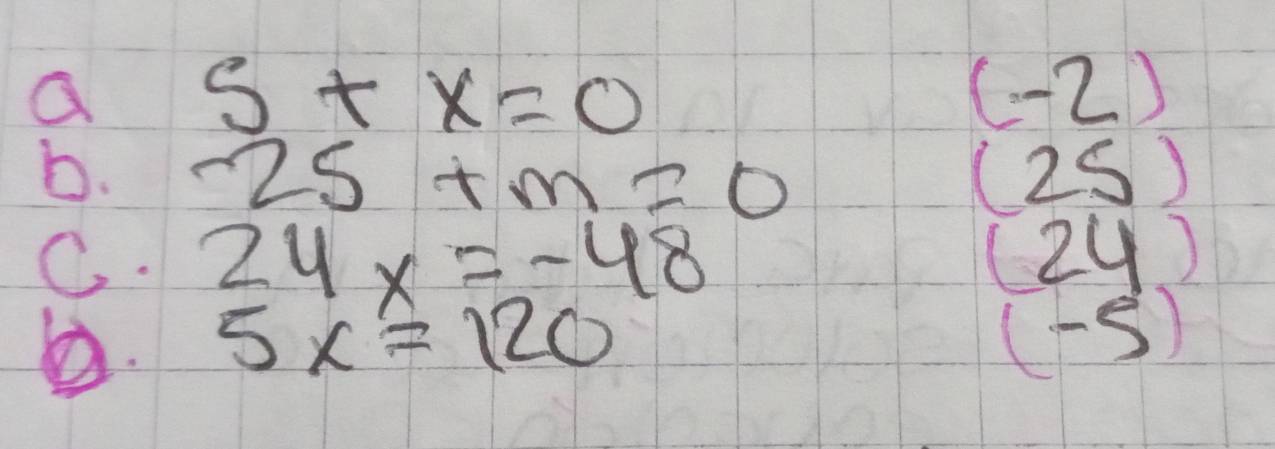 a 5 + x = 0 (-2)
b. -25 + m = 0 (25)
c. 24x = -48 (24)
b. 5x = 120 (-5)